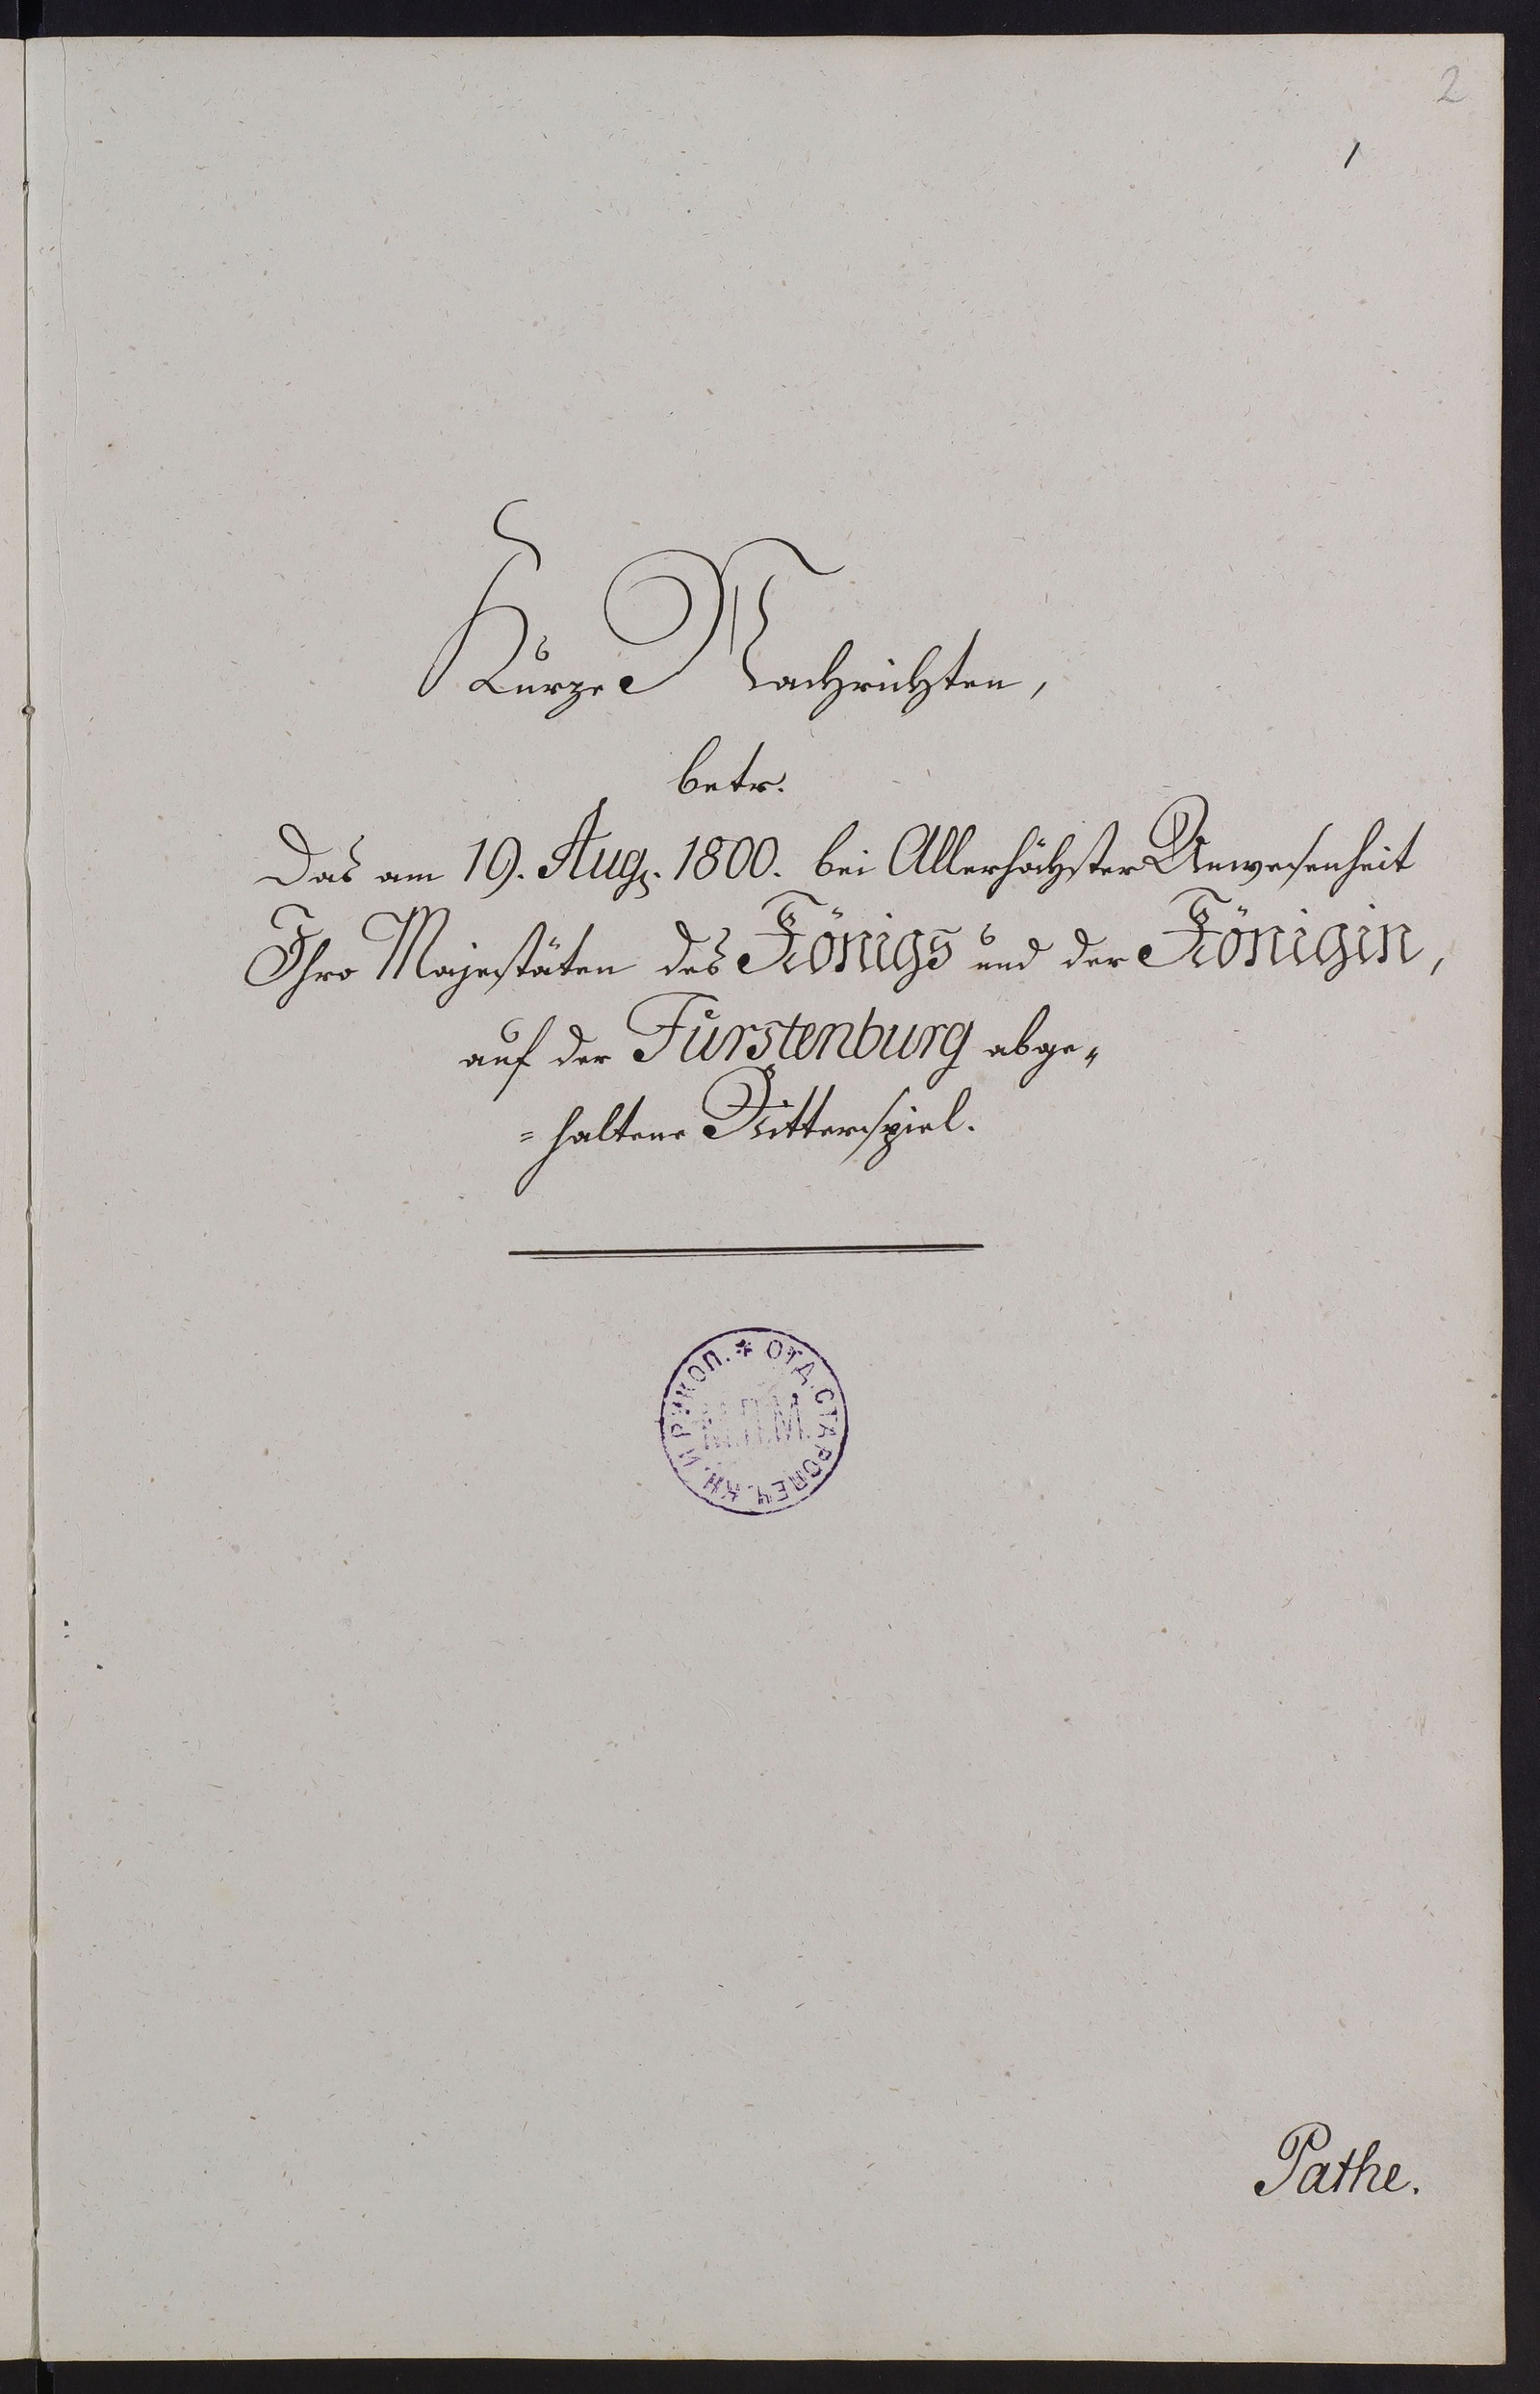 2
1
Kurze Nachrichten,
betr.
Das am 19. Aug. 1800. bei Allerhöchster Anwesenheit
Ihro Majestäten des Königs und der Königin,
auf der Fürstenburg abge„
=haltene Ritterspiel.
* ОТД. СТАРОПЕЧ. КН. И РУКОП.
М.П.М.
Pathe.